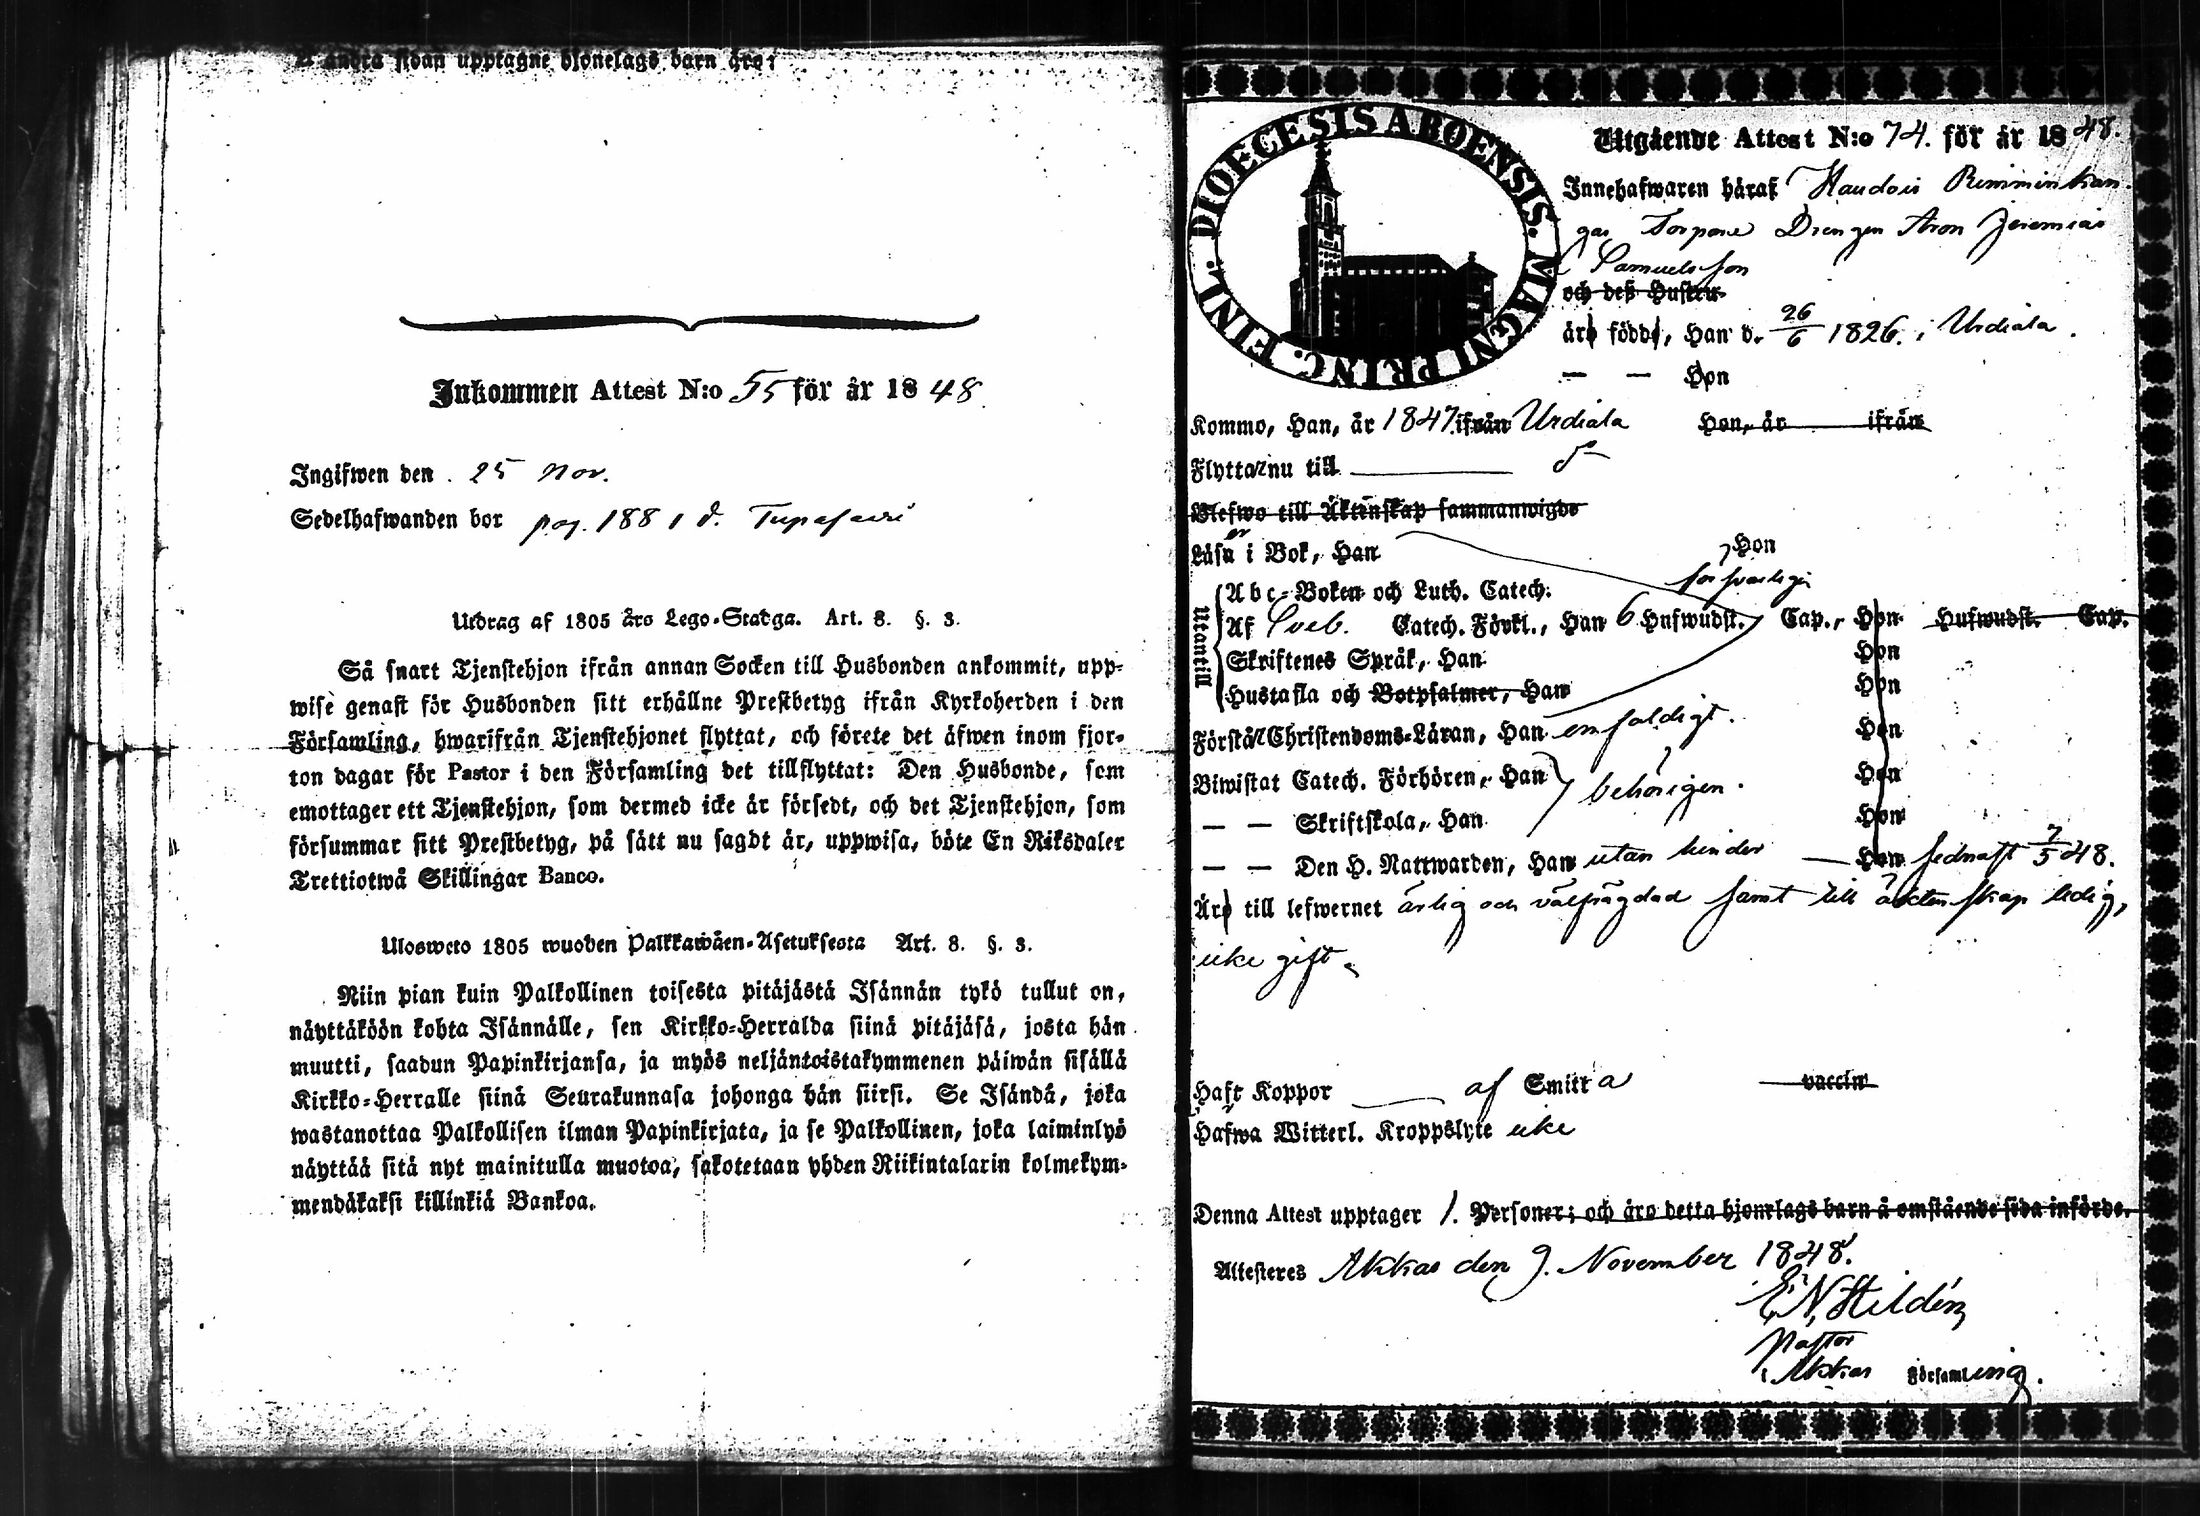 å andra sidan upptagne hjonelags barn äro:
Inkommen Attest N:o 55 för år 1848
Ingifwen den 25 Nov.
Sedelhafwanden bor pag. 188 i d. Tupasaari
Utdrag af 1805 åro Lego-Stadga. Art. 8. §. 3.
Så snart Tjenstehjon ifrån annan Socken till Husbonden ankommit, upp-
wise genast för Husbonden sitt erhållne Prestbetyg ifrån Kyrkoherden i den
Församling, hwarifrån Tjenstehjonet flyttat, och förete det äfwen inom fjor-
ton dagar för Pastor i den Församling det tillflyttat: Den Husbonde, som
emottager ett Tjenstehjon, som dermed icke är försedt, och det Tjenstehjon, som
försummar sitt Prestbetyg, på sätt nu sagdt är, uppwisa, böte En Riksdaler
Trettiotwå Skillingar Banco.
Uloswcto 1805 wuoden Palkkawäen-Asetuksesta Art. 8. §. 3.
Niin pian kuin Palkollinen toisesta pitäjästä Isännän tykö tullut on,
näyttäköön kohta Isännälle, sen Kirkko-Herralda siinä pitäjäsä, josta hän
muutti, saadun Papinkirjansa, ja myös neljäntoistakymmenen päiwän sisällä
Kirkko-Herralle siinä Seurakunnasa johonga hän siirsi. Se Isändä, joka
wastanottaa Palkollisen ilman Papinkirjata, ja se Palkollinen, joka laiminlyö
näyttää sitä nyt mainitulla muotoa, sakotetaan yhden Riikintalarin kolmekym-
mendäkaksi killinkiä Bankoa.
DIOECESIS ABOENSIS. MAGNI PRINC. FINL.
Utgående Attest N:o 74. för år 1848.
Innehafwaren häraf Haudois Rimminkan-
gas Torpare Drengen Aron Jeremias
Samuelsson
och deß Hustru
äro födde, Han d. 26/6 1826. i Urdiala.
— — Hon
Kommo, Han, år 1847 ifrån Urdiala Hon, år ifrån
Flyttar nu till
Blefwo till Äktenskap sammanwigde
Läser i Bok, Han Hon
försvarligen
Utantill
Abc-Boken och Luth. Catech:
Af Sveb. Catech. Förkl., Han 6 Hufwudst. Cap., Hon Hufwudst. Cap.
Skriftenes Språk, Han Hon
Hustafla och Botpsalmer, Han Hon
Förstår Christendoms-Läran, Han enfaldigt. Hon
Biwistat Catech. Förhören, Han behörigen. Hon
— — Skriftskola, Han Hon
— — Den H. Nattwarden, Han utan hinder — Hon sednast 7/5 48.
Äro till lefwernet ärlig och välfrägdad samt till äktenskap ledig,
icke gift.
Haft Koppor af Smitta vaccin
Hafwa Witterl. Kroppslyte icke
Denna Attest upptager 1. Personer; och äro detta hjonelags barn å omstående sida införde.
Attesteres Akkas den 9. November 1848.
E N Hildén
Pastor
i Akkas Församling.